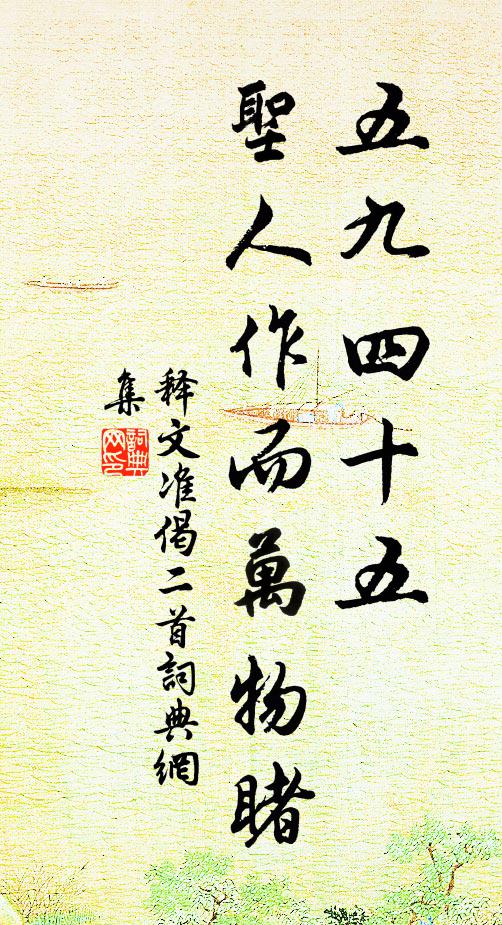 五九四十五
聖人作而萬物睹
释文准偈二首詞典網
集
詞典網印